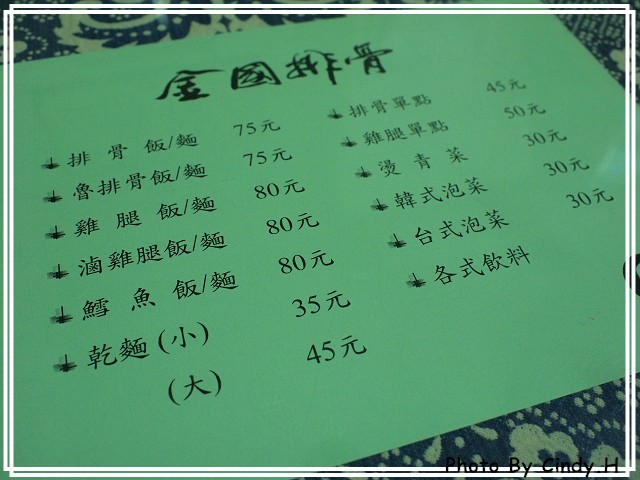 金國排骨
排骨飯/麵 75元
魯排骨飯/麵 75元
雞腿飯/麵 80元
滷雞腿飯/麵 80元
鱈魚飯/麵 80元
乾麵(小) 35元
(大) 45元
排骨單點 45元
雞腿單點 50元
燙青菜 30元
韓式泡菜 30元
台式泡菜 30元
各式飲料
Photo By Cindy.H